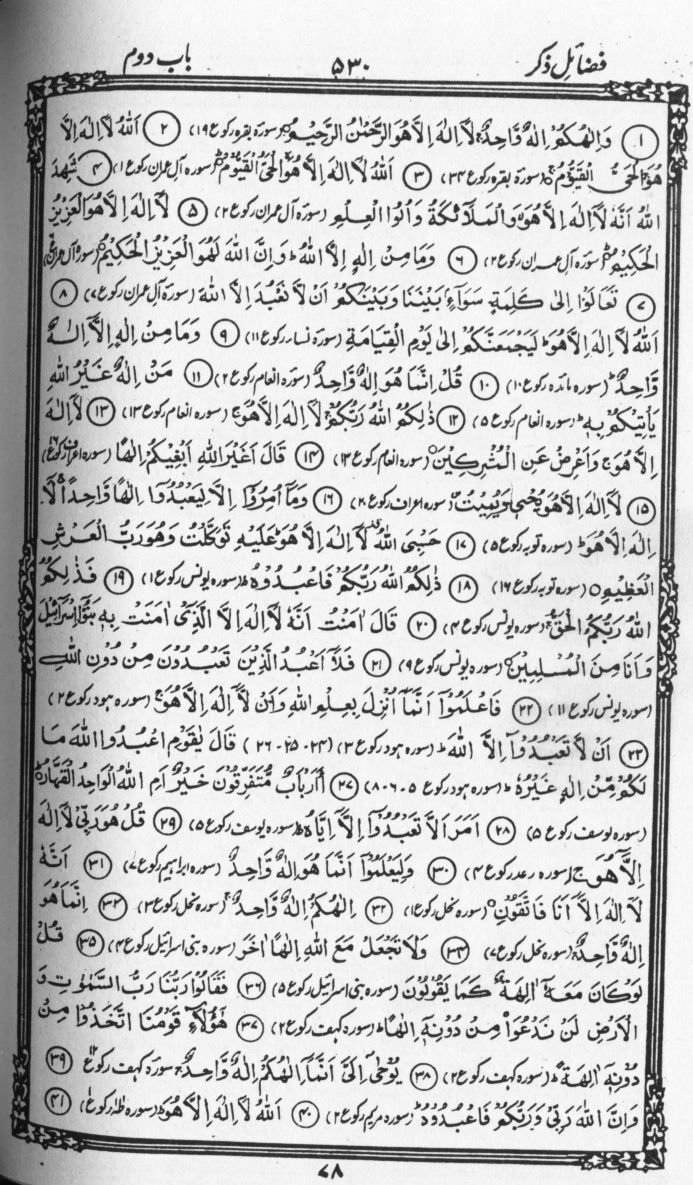 فضائل ذکر ۵۳۰ باب دوم
(۱) وَاِلٰهُكُمْ اِلٰهٌ وَّاحِدٌ لَآ اِلٰهَ اِلَّا هُوَ الرَّحْمٰنُ الرَّحِيْمُ (سورہ بقرہ رکوع ۱۹) (۲) اَللّٰهُ لَآ اِلٰهَ اِلَّا
هُوَ الْحَيُّ الْقَيُّوْمُ (سورہ بقرہ رکوع ۳۴) (۳) اَللّٰهُ لَآ اِلٰهَ اِلَّا هُوَ الْحَيُّ الْقَيُّوْمُ (سورہ آل عمران رکوع ۱) (۴) شَهِدَ
اللّٰهُ اَنَّهٗ لَآ اِلٰهَ اِلَّا هُوَ وَالْمَلَآئِكَةُ وَاُولُوا الْعِلْمِ (سورہ آل عمران رکوع ۲) (۵) لَآ اِلٰهَ اِلَّا هُوَ الْعَزِيْزُ
الْحَكِيْمُ (سورہ آل عمران رکوع ۲) (۶) وَمَا مِنْ اِلٰهٍ اِلَّا اللّٰهُ وَاِنَّ اللّٰهَ لَهُوَ الْعَزِيْزُ الْحَكِيْمُ (سورہ آل عمران
(۷) تَعَالَوْا اِلٰى كَلِمَةٍ سَوَآءٍ بَيْنَنَا وَبَيْنَكُمْ اَنْ لَّا نَعْبُدَ اِلَّا اللّٰهَ (سورہ آل عمران رکوع ۷) (۸)
اَللّٰهُ لَآ اِلٰهَ اِلَّا هُوَ لَيَجْمَعَنَّكُمْ اِلٰى يَوْمِ الْقِيَامَةِ (سورہ نساء رکوع ۱۱) (۹) وَمَا مِنْ اِلٰهٍ اِلَّآ اِلٰهٌ
وَّاحِدٌ (سورہ مائدہ رکوع ۱۰) (۱۰) قُلْ اِنَّمَا هُوَ اِلٰهٌ وَّاحِدٌ (سورہ انعام رکوع ۲) (۱۱) مَنْ اِلٰهٌ غَيْرُ اللّٰهِ
يَاْتِيْكُمْ بِهٖ (سورہ انعام رکوع ۵) (۱۲) ذٰلِكُمُ اللّٰهُ رَبُّكُمْ لَآ اِلٰهَ اِلَّا هُوَ (سورہ انعام رکوع ۱۳) (۱۳) لَآ اِلٰهَ
اِلَّا هُوَ وَاَعْرِضْ عَنِ الْمُشْرِكِيْنَ (سورہ انعام رکوع ۱۳) (۱۴) قَالَ اَغَيْرَ اللّٰهِ اَبْغِيْكُمْ اِلٰهًا (سورہ اعراف رکوع
(۱۵) لَآ اِلٰهَ اِلَّا هُوَ يُحْيٖ وَيُمِيْتُ (سورہ اعراف رکوع ۲۰) (۱۶) وَمَآ اُمِرُوْٓا اِلَّا لِيَعْبُدُوْٓا اِلٰهًا وَّاحِدًا لَآ
اِلٰهَ اِلَّا هُوَ (سورہ توبہ رکوع ۵) (۱۷) حَسْبِيَ اللّٰهُ لَآ اِلٰهَ اِلَّا هُوَ عَلَيْهِ تَوَكَّلْتُ وَهُوَ رَبُّ الْعَرْشِ
الْعَظِيْمِ (سورہ توبہ رکوع ۱۶) (۱۸) ذٰلِكُمُ اللّٰهُ رَبُّكُمْ فَاعْبُدُوْهُ (سورہ یونس رکوع ۱) (۱۹) فَذٰلِكُمُ
اللّٰهُ رَبُّكُمُ الْحَقُّ (سورہ یونس رکوع ۴) (۲۰) قَالَ اٰمَنْتُ اَنَّهٗ لَآ اِلٰهَ اِلَّا الَّذِيْٓ اٰمَنَتْ بِهٖ بَنُوْٓا اِسْرَآئِيْلَ
وَاَنَا مِنَ الْمُسْلِمِيْنَ (سورہ یونس رکوع ۹) (۲۱) فَلَآ اَعْبُدُ الَّذِيْنَ تَعْبُدُوْنَ مِنْ دُوْنِ اللّٰهِ
(سورہ یونس رکوع ۱۱) (۲۲) فَاعْلَمُوْٓا اَنَّمَآ اُنْزِلَ بِعِلْمِ اللّٰهِ وَاَنْ لَّآ اِلٰهَ اِلَّا هُوَ (سورہ ہود رکوع ۲)
(۲۳) اَنْ لَّا تَعْبُدُوْٓا اِلَّا اللّٰهَ (سورہ ہود رکوع ۳) (۲۴-۲۵-۲۶) قَالَ يٰقَوْمِ اعْبُدُوا اللّٰهَ مَا
لَكُمْ مِّنْ اِلٰهٍ غَيْرُهٗ (سورہ ہود رکوع ۵-۶-۸) (۲۷) ءَاَرْبَابٌ مُّتَفَرِّقُوْنَ خَيْرٌ اَمِ اللّٰهُ الْوَاحِدُ الْقَهَّارُ
(سورہ یوسف رکوع ۵) (۲۸) اَمَرَ اَلَّا تَعْبُدُوْٓا اِلَّآ اِيَّاهُ (سورہ یوسف رکوع ۵) (۲۹) قُلْ هُوَ رَبِّيْ لَآ اِلٰهَ
اِلَّا هُوَ (سورہ رعد رکوع ۴) (۳۰) وَلِيَعْلَمُوْٓا اَنَّمَا هُوَ اِلٰهٌ وَّاحِدٌ (سورہ ابراہیم رکوع ۷) (۳۱) اَنَّهٗ
لَآ اِلٰهَ اِلَّآ اَنَا فَاتَّقُوْنِ (سورہ نحل رکوع ۱) (۳۲) اِلٰهُكُمْ اِلٰهٌ وَّاحِدٌ (سورہ نحل رکوع ۳) (۳۳) اِنَّمَا هُوَ
اِلٰهٌ وَّاحِدٌ (سورہ نحل رکوع ۷) (۳۴) وَلَا تَجْعَلْ مَعَ اللّٰهِ اِلٰهًا اٰخَرَ (سورہ بنی اسرائیل رکوع ۴) (۳۵) قُلْ
لَوْ كَانَ مَعَهٗٓ اٰلِهَةٌ كَمَا يَقُوْلُوْنَ (سورہ بنی اسرائیل رکوع ۵) (۳۶) فَقَالُوْا رَبُّنَا رَبُّ السَّمٰوٰتِ وَ
الْاَرْضِ لَنْ نَّدْعُوَا۟ مِنْ دُوْنِهٖٓ اِلٰهًا (سورہ کہف رکوع ۲) (۳۷) هٰٓؤُلَآءِ قَوْمُنَا اتَّخَذُوْا مِنْ
دُوْنِهٖٓ اٰلِهَةً (سورہ کہف رکوع ۲) (۳۸) يُوْحٰٓى اِلَيَّ اَنَّمَآ اِلٰهُكُمْ اِلٰهٌ وَّاحِدٌ سورہ کہف رکوع ۱۲ (۳۹)
وَاِنَّ اللّٰهَ رَبِّيْ وَرَبُّكُمْ فَاعْبُدُوْهُ (سورہ مریم رکوع ۲) (۴۰) اَللّٰهُ لَآ اِلٰهَ اِلَّا هُوَ (سورہ طٰہٰ رکوع ۱) (۴۱)
۷۸